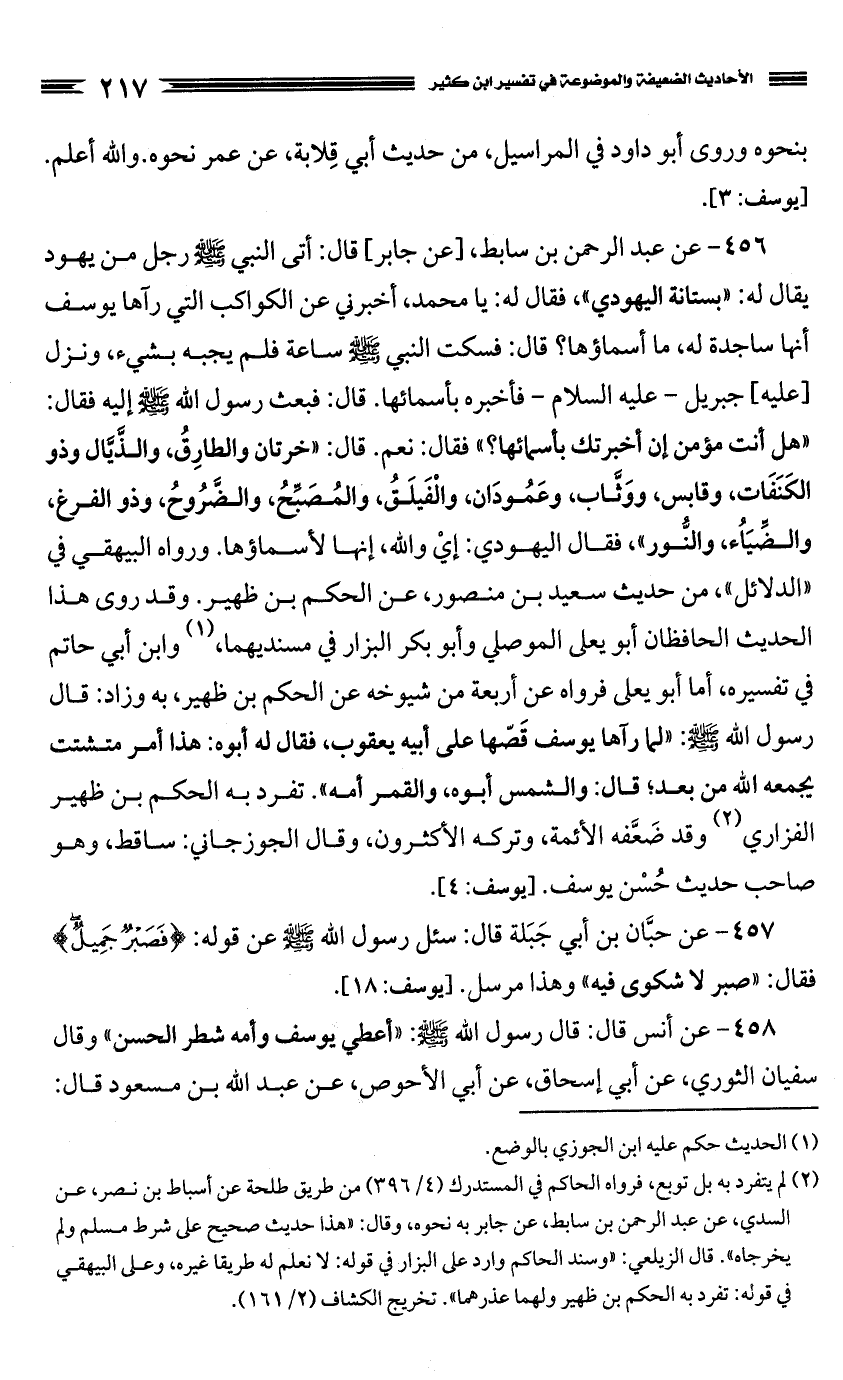 الأحاديث الضعيفة والموضوعة في تفسير ابن كثير ٢١٧
بنحوه وروى أبو داود في المراسيل، من حديث أبي قِلابة، عن عمر نحوه.والله أعلم.
[يوسف: ٣].
٤٥٦- عن عبد الرحمن بن سابط، [عن جابر] قال: أتى النبي ﷺ رجل من يهود
يقال له: «بستانة اليهودي»، فقال له: يا محمد، أخبرني عن الكواكب التي رآها يوسف
أنها ساجدة له، ما أسماؤها؟ قال: فسكت النبي ﷺ ساعة فلم يجبه بشيء، ونزل
[عليه] جبريل - عليه السلام - فأخبره بأسمائها. قال: فبعث رسول الله ﷺ إليه فقال:
«هل أنت مؤمن إن أخبرتك بأسمائها؟» فقال: نعم. قال: «خرتان والطارِقُ، والذَّيَّال وذو
الكَنَفَات، وقابس، ووَثَّاب، وعَمُودَان، والْفَيلَقُ، والمُصَبِّحُ، والضَّرُوحُ، وذو الفرغ،
والضِّيَاُء، والنُّور»، فقال اليهودي: إيْ والله، إنها لأسماؤها. ورواه البيهقي في
«الدلائل»، من حديث سعيد بن منصور، عن الحكم بن ظهير. وقد روى هذا
الحديث الحافظان أبو يعلى الموصلي وأبو بكر البزار في مسنديهما،(١) وابن أبي حاتم
في تفسيره، أما أبو يعلى فرواه عن أربعة من شيوخه عن الحكم بن ظهير، به وزاد: قال
رسول الله ﷺ: «لما رآها يوسف قَصّها على أبيه يعقوب، فقال له أبوه: هذا أمر متشتت
يجمعه الله من بعد؛ قال: والشمس أبوه، والقمر أمه». تفرد به الحكم بن ظهير
الفزاري(٢) وقد ضَعَّفه الأئمة، وتركه الأكثرون، وقال الجوزجاني: ساقط، وهو
صاحب حديث حُسْن يوسف. [يوسف: ٤].
٤٥٧- عن حبَّان بن أبي جَبَلة قال: سئل رسول الله ﷺ عن قوله: ﴿فَصَبْرٌ جَمِيلٌ﴾
فقال: «صبر لا شكوى فيه» وهذا مرسل. [يوسف: ١٨].
٤٥٨- عن أنس قال: قال رسول الله ﷺ: «أعطي يوسف وأمه شطر الحسن» وقال
سفيان الثوري، عن أبي إسحاق، عن أبي الأحوص، عن عبد الله بن مسعود قال:
(١) الحديث حكم عليه ابن الجوزي بالوضع.
(٢) لم يتفرد به بل توبع، فرواه الحاكم في المستدرك (٤/ ٣٩٦) من طريق طلحة عن أسباط بن نصر، عن
السدي، عن عبد الرحمن بن سابط، عن جابر به نحوه، وقال: «هذا حديث صحيح على شرط مسلم ولم
يخرجاه». قال الزيلعي: «وسند الحاكم وارد على البزار في قوله: لا نعلم له طريقا غيره، وعلى البيهقي
في قوله: تفرد به الحكم بن ظهير ولهما عذرهما». تخريج الكشاف (٢/ ١٦١).